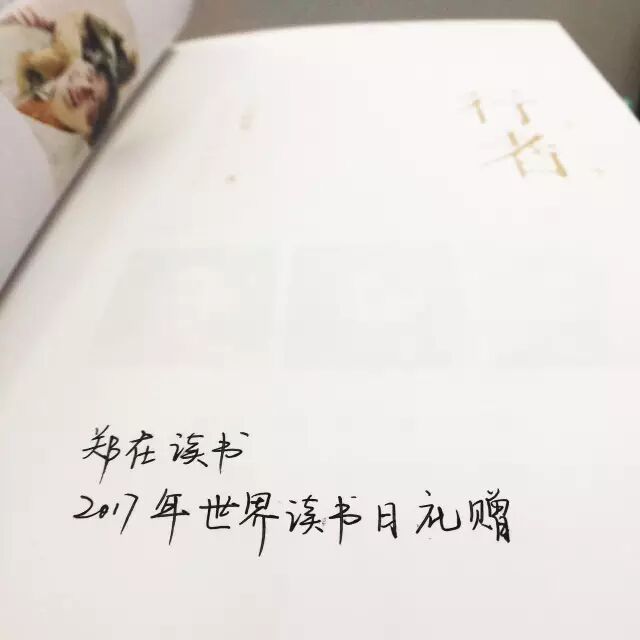 行者
郑在读书
2017年世界读书日礼赠